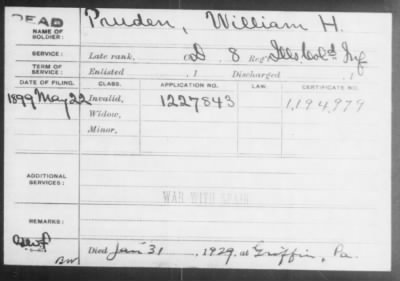 DEAD
NAME OF SOLDIER: Pruden, William H.
SERVICE: Late rank, Co D, 8 Reg't Ills Col'd Inf
TERM OF SERVICE: Enlisted , 1 Discharged , 1
DATE OF FILING. CLASS. APPLICATION NO. LAW. CERTIFICATE NO.
1899 May 22 Invalid, 1227843 1,194,979
Widow,
Minor,
ADDITIONAL SERVICES:
WAR WITH SPAIN
REMARKS:
Died Jan 31, 1929, at Griffin, Ga.